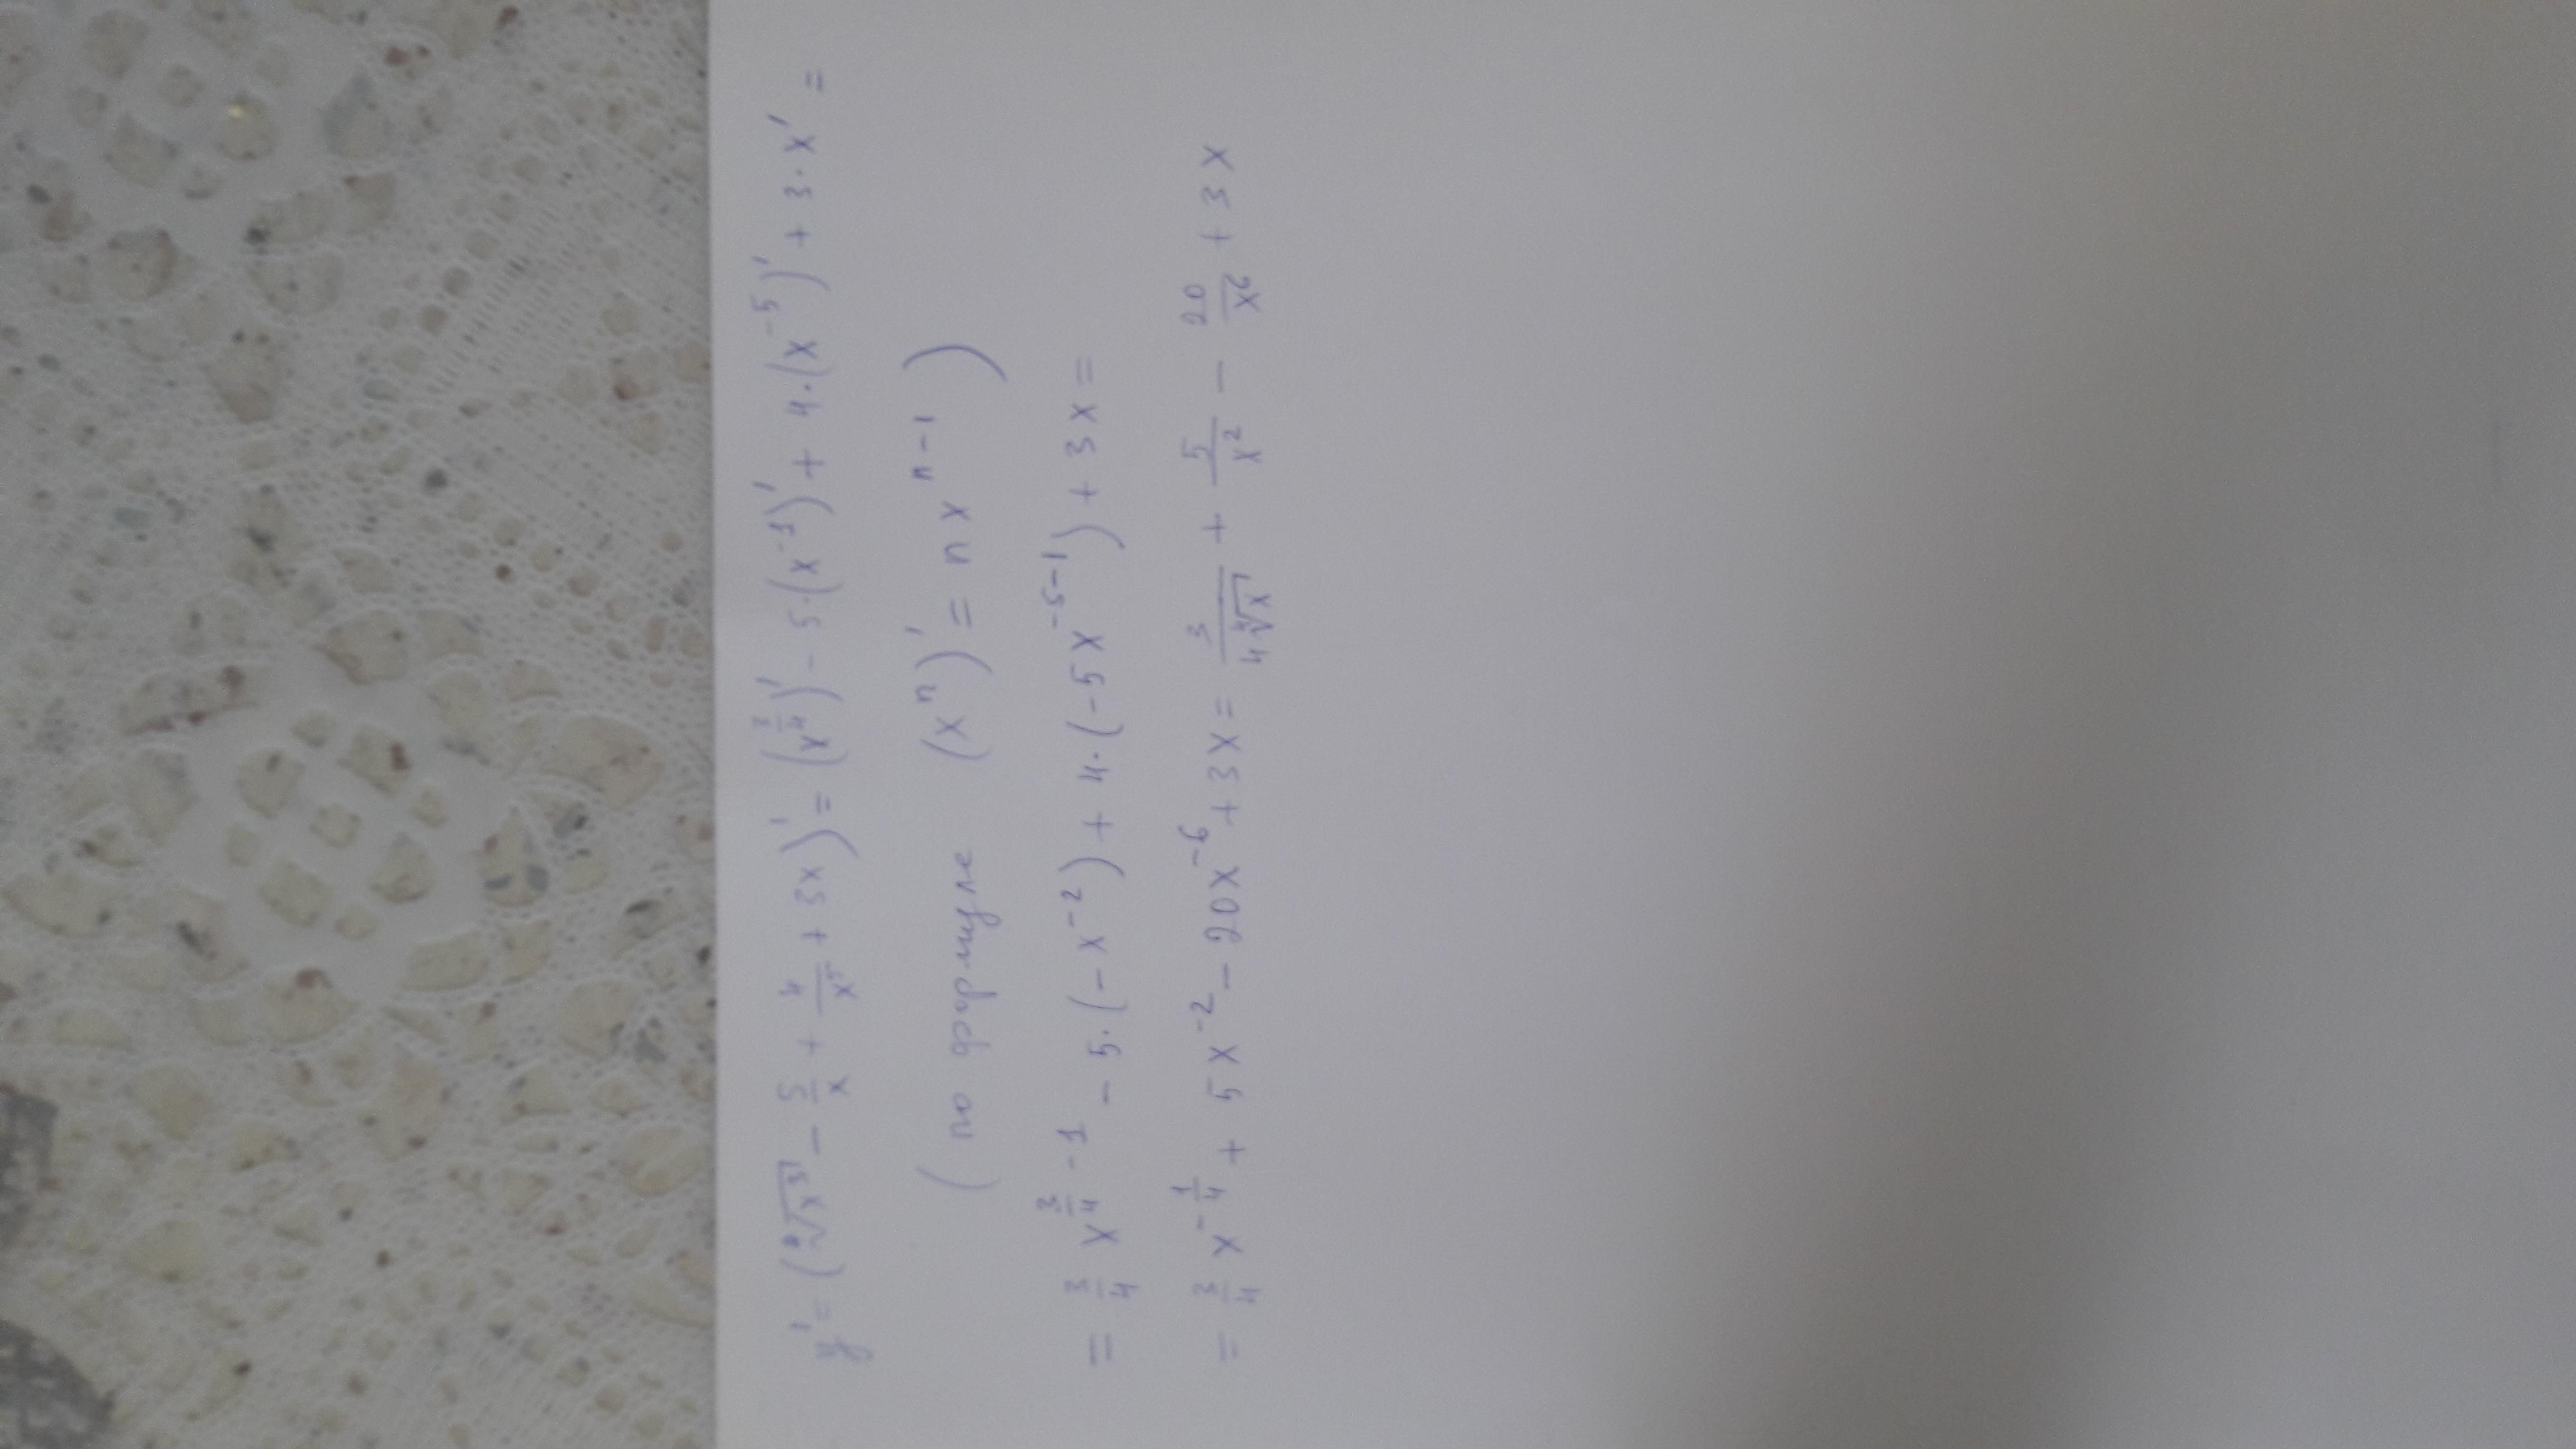 y' = (⁴√x³ − 5/x + 4/x⁵ + 3x)' = (x^(3/4))' − 5·(x⁻¹)' + 4·(x⁻⁵)' + 3·x' =
(по формуле (xⁿ)' = n xⁿ⁻¹)
= 3/4 x^(3/4 − 1) − 5·(−x⁻²) + 4·(−5x⁻⁵⁻¹) + 3x =
= 3/4 x^(−1/4) + 5x⁻² − 20x⁻⁶ + 3x = 3/(4 ⁴√x) + 5/x² − 20/x⁶ + 3x